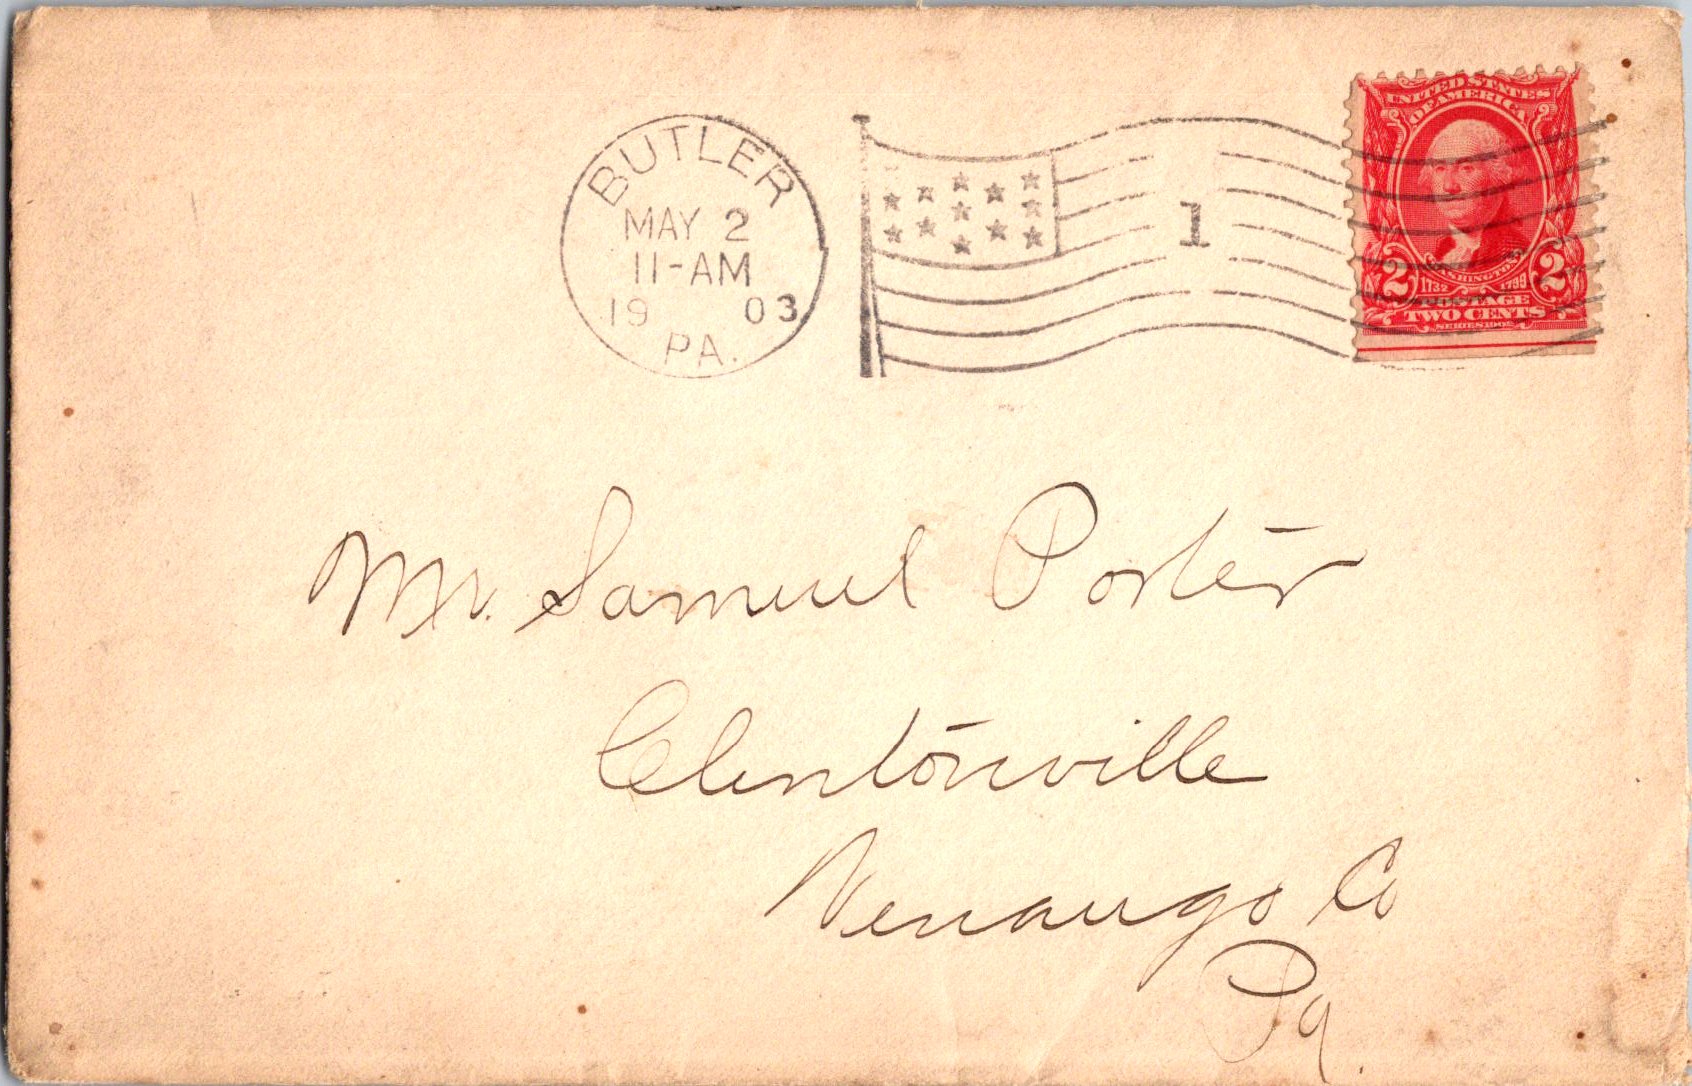 BUTLER
MAY 2
11-AM
19 03
PA.
1
UNITED STATES
OF AMERICA
WASHINGTON
1732 1799
2 2
POSTAGE
TWO CENTS
SERIES 1902
Mr. Samuel Porter
Clintonville
Venango Co
Pa.